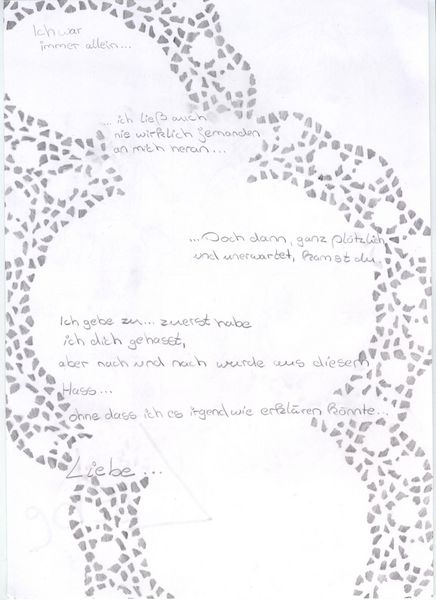 Ich war
immer allein...
...ich ließ auch
nie wirklich jemanden
an mich heran...
...Doch dann, ganz plötzlich
und unerwartet, kamst du.
Ich gebe zu... zuerst habe
ich dich gehasst,
aber nach und nach wurde aus diesem
Hass...
ohne dass ich es irgendwie erklären könnte...
Liebe...